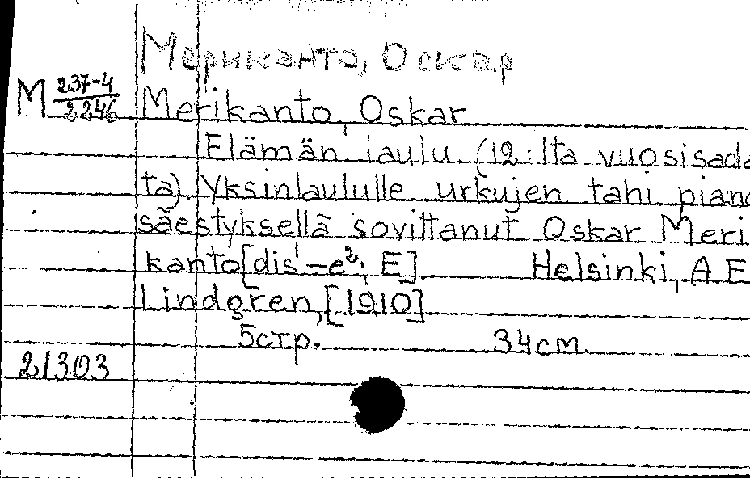 Мериканто, Оскар
М 237-4/2246
Merikanto, Oskar
Elämän laulu (12:lta vuosisada
ta). Yksinlaululle urkujen tahi piano
säestyksellä sovittanut Oskar Meri
kanto [dis¹–e²; E]. Helsinki, A.E.
Lindgren, [1910]
5стр. 34см.
21303